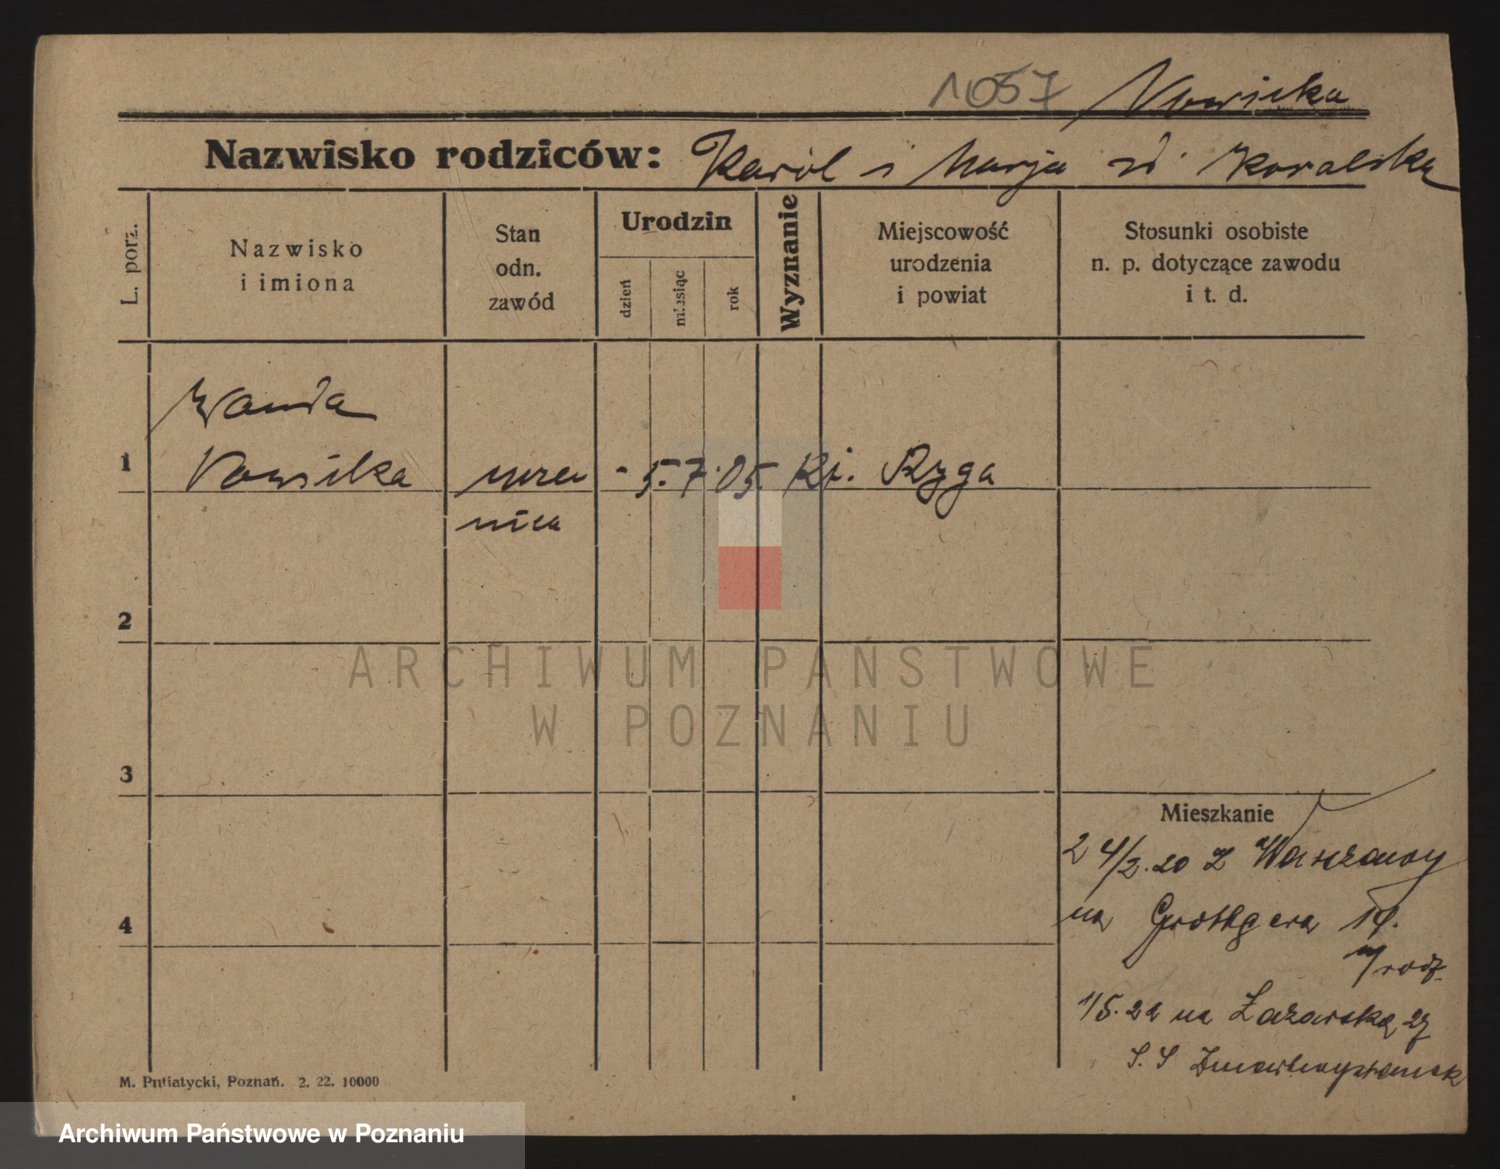 1057 Nowicka
Nazwisko rodziców: Karol i Marja zd. Kowalska
L. porz.
Nazwisko
i imiona
Stan
odn.
zawód
Urodzin
dzień
miesiąc
rok
Wyznanie
Miejscowość
urodzenia
i powiat
Stosunki osobiste
n. p. dotyczące zawodu
i t. d.
Wanda
1 Nowicka uczen - 5. 7. 05. Kt. Ryga
nica
2
ARCHIWUM PAŃSTWOWE
W POZNANIU
3
Mieszkanie
24/2.20 z Warszawy
na Grottgera 14.
4
rodz.
1/5.22 na Łazarska 27
S. S. Zmartwychwstanek
M. Putiatycki, Poznań. 2. 22. 10000
Archiwum Państwowe w Poznaniu